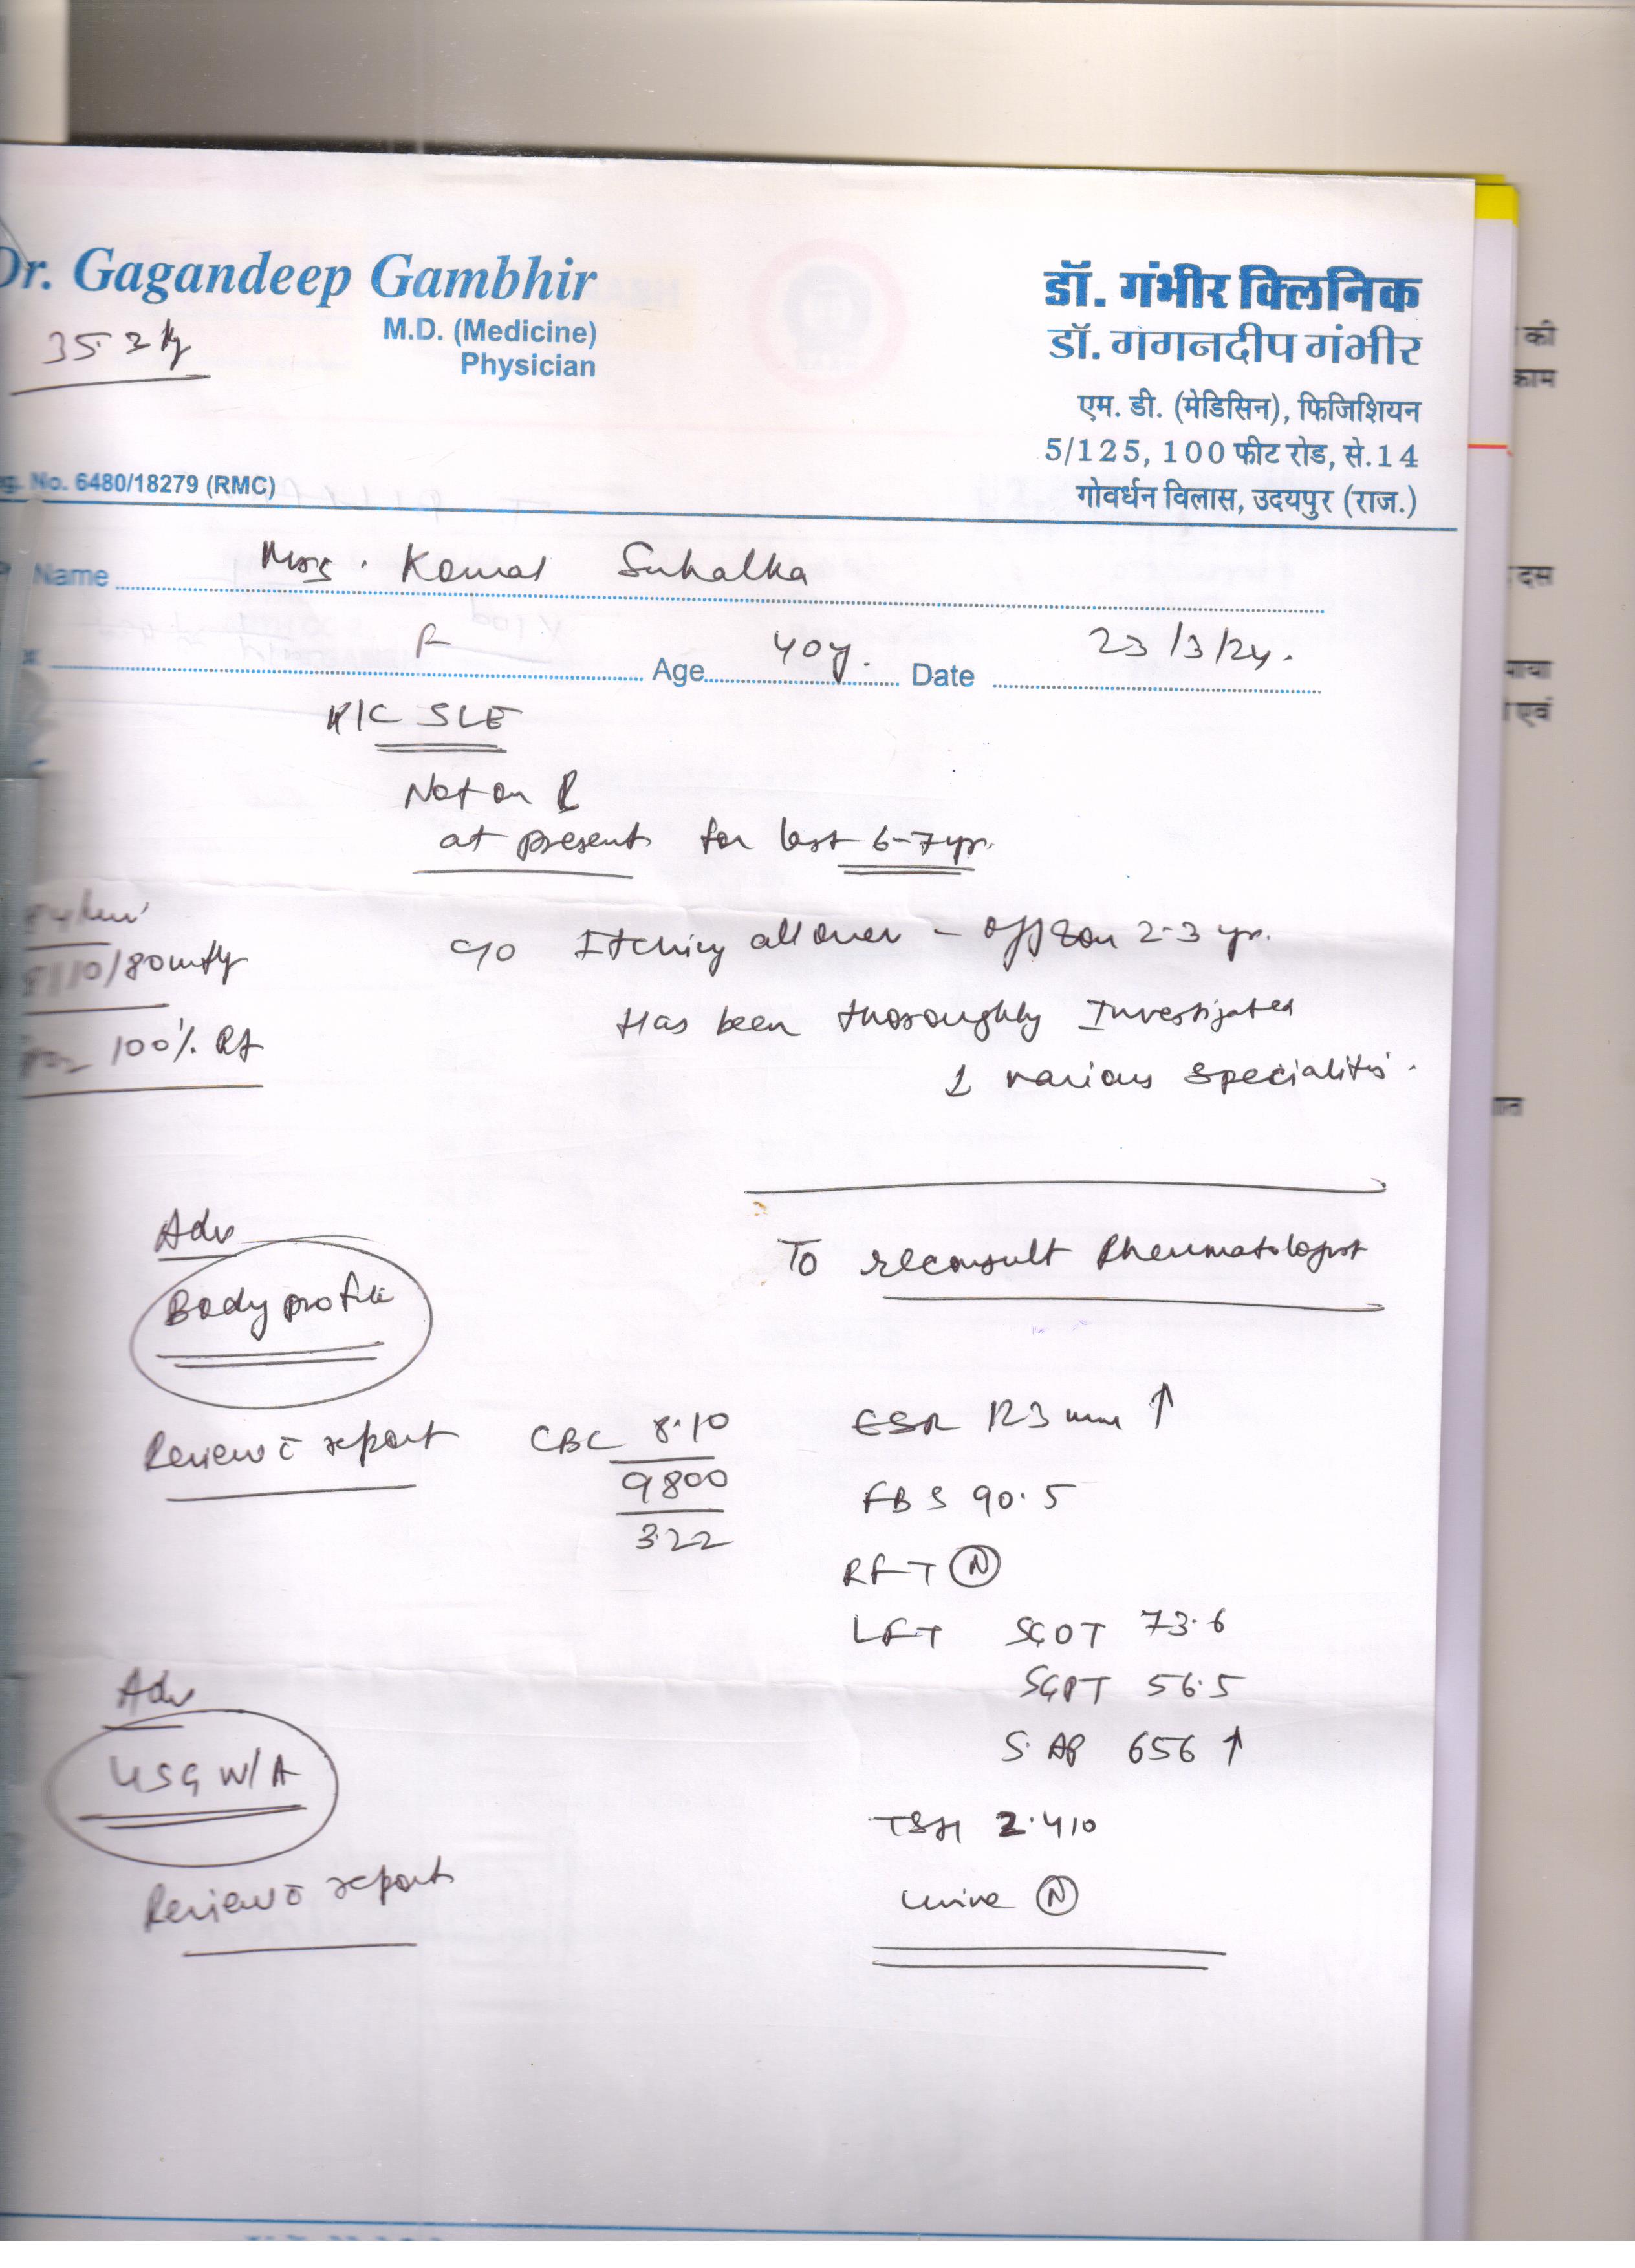 Dr. Gagandeep Gambhir
M.D. (Medicine)
Physician
35.2 kg
No. 6480/18279 (RMC)
डॉ. गंभीर क्लिनिक
डॉ. गगनदीप गंभीर
एम. डी. (मेडिसिन), फिजिशियन
5/125, 100 फीट रोड, से.14
गोवर्धन विलास, उदयपुर (राज.)
Name Mrs. Komal Suhalka
F Age 40y. Date 23/3/24.
K/C SLE
Not on R
at present for last 6-7 yr.
c/o Itching all over - off & on 2-3 yr.
110/80 mmHg
Has been thoroughly Investigated
100% RA
various specialities.
Adv
Body profile
To reconsult Rheumatologist
Review c̄ report
CBC 8.10
9800
322
ESR 123 mm ↑
FBS 90.5
RFT (N)
LFT SGOT 73.6
SGPT 56.5
S. AP 656 ↑
Adv
USG W/A
TSH 2.410
Review c̄ report
Urine (N)
की
काम
दस
एवं